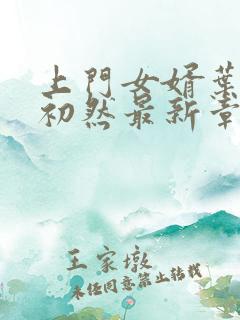 上門女婿葉
初然最新章
王家墩
未经同意禁止转载